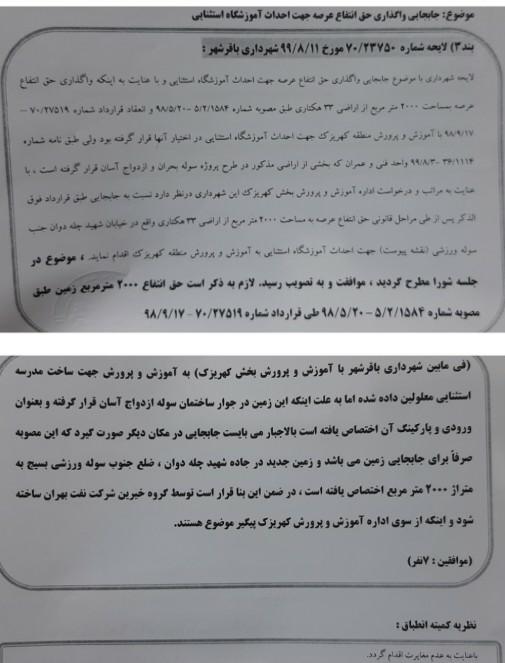 موضوع: جابجایی واگذاری حق انتفاع عرصه جهت احداث آموزشگاه استثنایی
بند۳) لایحه شماره ۷۰/۲۳۷۵۰ مورخ ۹۹/۸/۱۱ شهرداری باقرشهر :
لایحه شهرداری با موضوع جابجایی واگذاری حق انتفاع عرصه جهت احداث آموزشگاه استثنایی و با عنایت به اینکه واگذاری حق انتفاع
عرصه بمساحت ۲۰۰۰ متر مربع از اراضی ۳۳ هکتاری طبق مصوبه شماره ۵/۲/۱۵۸۴ -۹۸/۵/۲۰ و انعقاد قرارداد شماره ۷۰/۲۷۵۱۹ –
۹۸/۹/۱۷ با آموزش و پرورش منطقه کهریزک جهت احداث آموزشگاه استثنایی در اختیار آنها قرار گرفته بود ولی طبق نامه شماره
۳۶/۱۱۱۴ -۹۹/۸/۳ واحد فنی و عمران که بخشی از اراضی مذکور در طرح پروژه سوله بحران و ازدواج آسان قرار گرفته است ، با
عنایت به مراتب و درخواست اداره آموزش و پرورش بخش کهریزک این شهرداری درنظر دارد نسبت به جابجایی طبق قرارداد فوق
الذکر پس از طی مراحل قانونی حق انتفاع عرصه به مساحت ۲۰۰۰ متر مربع از اراضی ۳۳ هکتاری واقع در خیابان شهید چله دوان جنب
سوله ورزشی (نقشه پیوست) جهت احداث آموزشگاه استثنایی به آموزش و پرورش منطقه کهریزک اقدام نمایند. ، موضوع در
جلسه شورا مطرح گردید ، موافقت و به تصویب رسید. لازم به ذکر است حق انتفاع ۲۰۰۰ مترمربع زمین طبق
مصوبه شماره ۵/۲/۱۵۸۴ – ۹۸/۵/۲۰ طی قرارداد شماره ۷۰/۲۷۵۱۹ - ۹۸/۹/۱۷
(فی مابین شهرداری باقرشهر با آموزش و پرورش بخش کهریزک) به آموزش و پرورش جهت ساخت مدرسه
استثنایی معلولین داده شده اما به علت اینکه این زمین در جوار ساختمان سوله ازدواج آسان قرار گرفته و بعنوان
ورودی و پارکینگ آن اختصاص یافته است بالاجبار می بایست جابجایی در مکان دیگر صورت گیرد که این مصوبه
صرفاً برای جابجایی زمین می باشد و زمین جدید در جاده شهید چله دوان ، ضلع جنوب سوله ورزشی بسیج به
متراژ ۲۰۰۰ متر مربع اختصاص یافته است ، در ضمن این بنا قرار است توسط گروه خیرین شرکت نفت بهران ساخته
شود و اینکه از سوی اداره آموزش و پرورش کهریزک پیگیر موضوع هستند.
(موافقین : ۷نفر)
نظریه کمیته انطباق :
باعنایت به عدم مغایرت اقدام گردد.